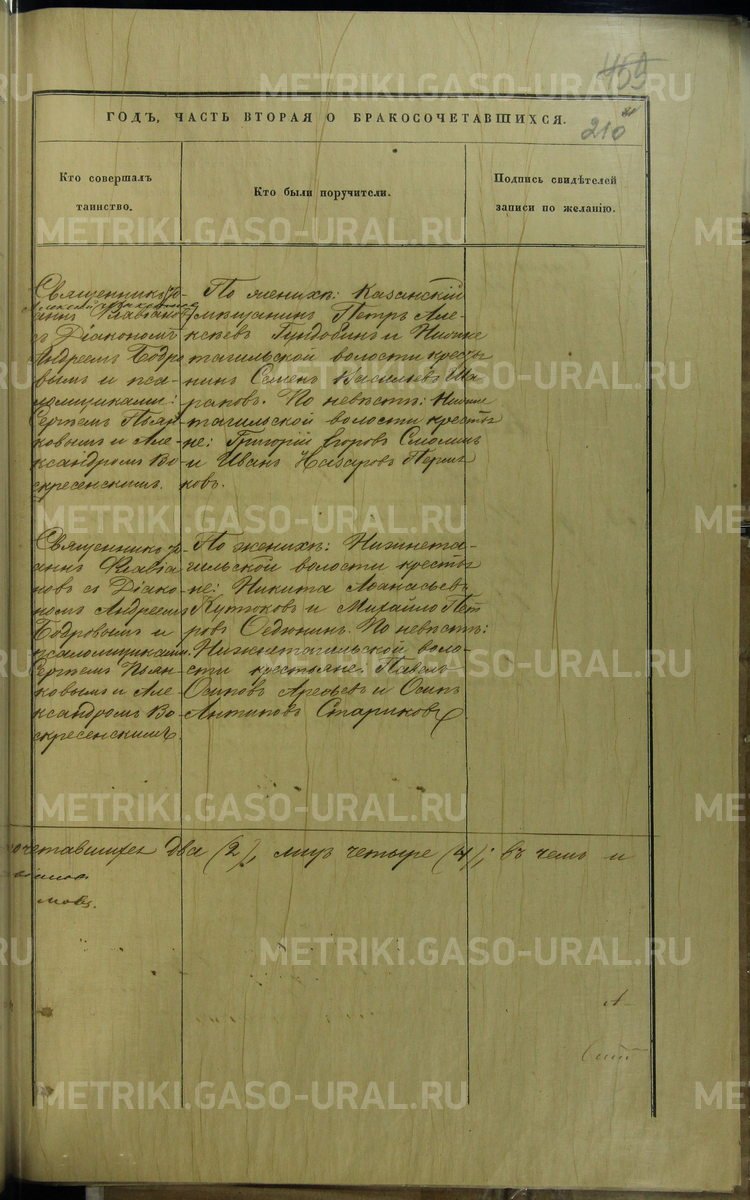 459
210
ГОДЪ, ЧАСТЬ ВТОРАЯ О БРАКОСОЧЕТАВШИХСЯ.
Кто совершалъ
таинство.
Кто были поручители.
Подпись свидѣтелей
записи по желанію.
Священникъ Іо-
аннъ Флавіановъ
съ Діакономъ
Андреемъ Бодро
вымъ и пса-
ломщиками:
Сергѣемъ Пьян
ковымъ и Але-
ксандромъ Во
скресенскимъ.
По женихѣ: Казанскій
мѣщанинъ Петръ Але-
ксѣевъ Гундобинъ и Нижне
тагильской волости кресть
нинъ Семенъ Васильевъ Ша
раповъ. По невѣстѣ: Нижне
тагильской волости крестья
не: Григорій Егоровъ Смолинъ
и Иванъ Назаровъ Перми
ковъ.
Священникъ Іо-
аннъ Флавіа
новъ съ Діако-
номъ Андреемъ
Бодровымъ и
псаломщиками
Сергѣемъ Пьян-
ковымъ и Але-
ксандромъ Во
скресенскимъ.
По женихѣ: Нижнета-
гильской волости крестья
не: Никита Аѳанасьевъ
Кутюковъ и Михайло Пет
ровъ Ѳедюнинъ. По невѣстѣ:
Нижнетагильской воло-
сти крестьяне: Павелъ
Осиповъ Арефьевъ и Осипъ
Антиповъ Стариковъ.
очетавшихся два (2), лицъ четыре (4); въ чемъ и
METRIKI.GASO-URAL.RU